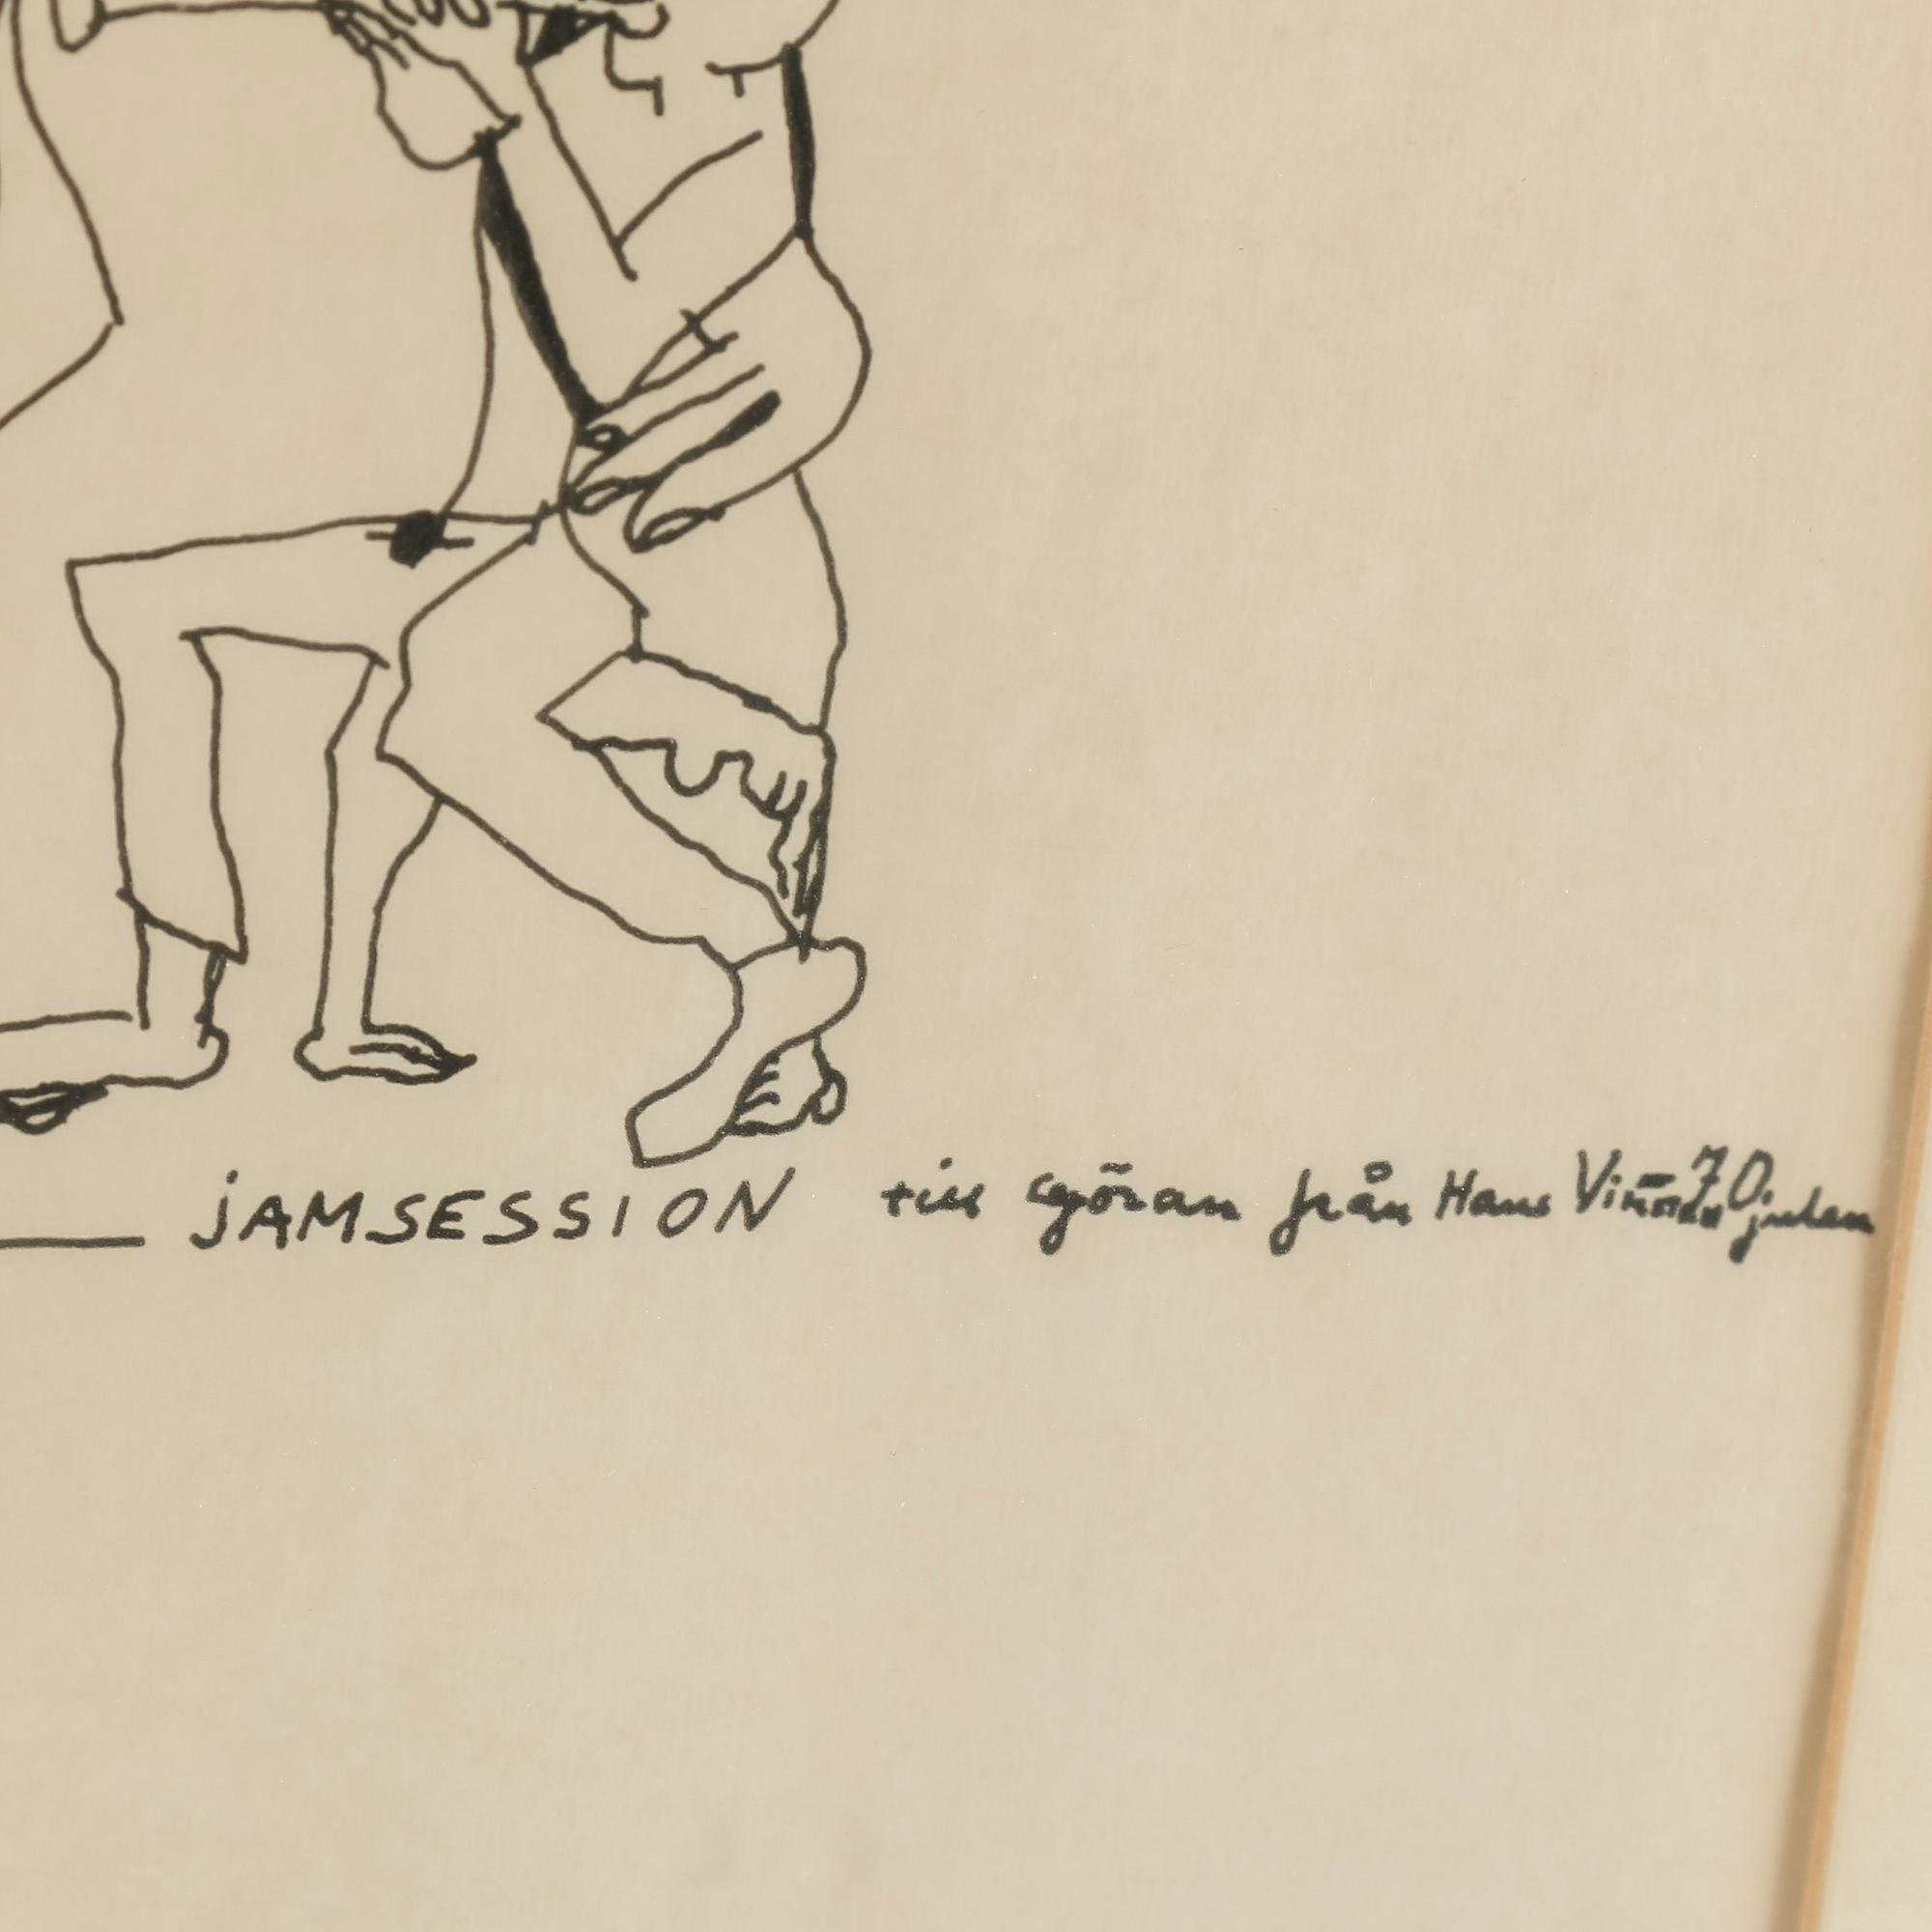 jAMSESSION till Göran från Hans Viksten 70. julen